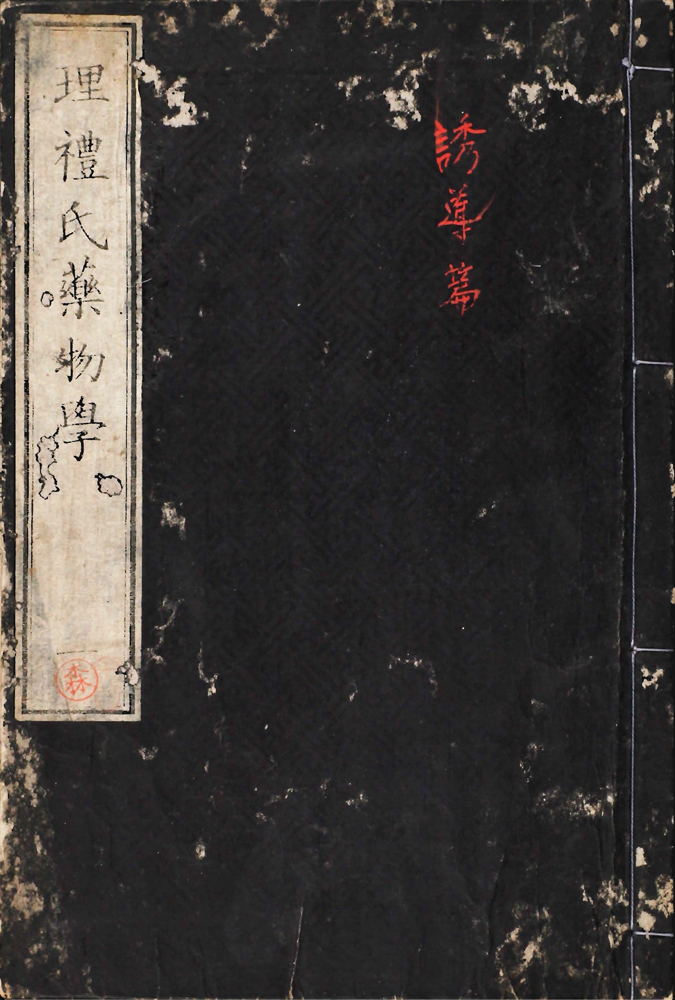 誘導篇
理禮氏藥物學
一
森